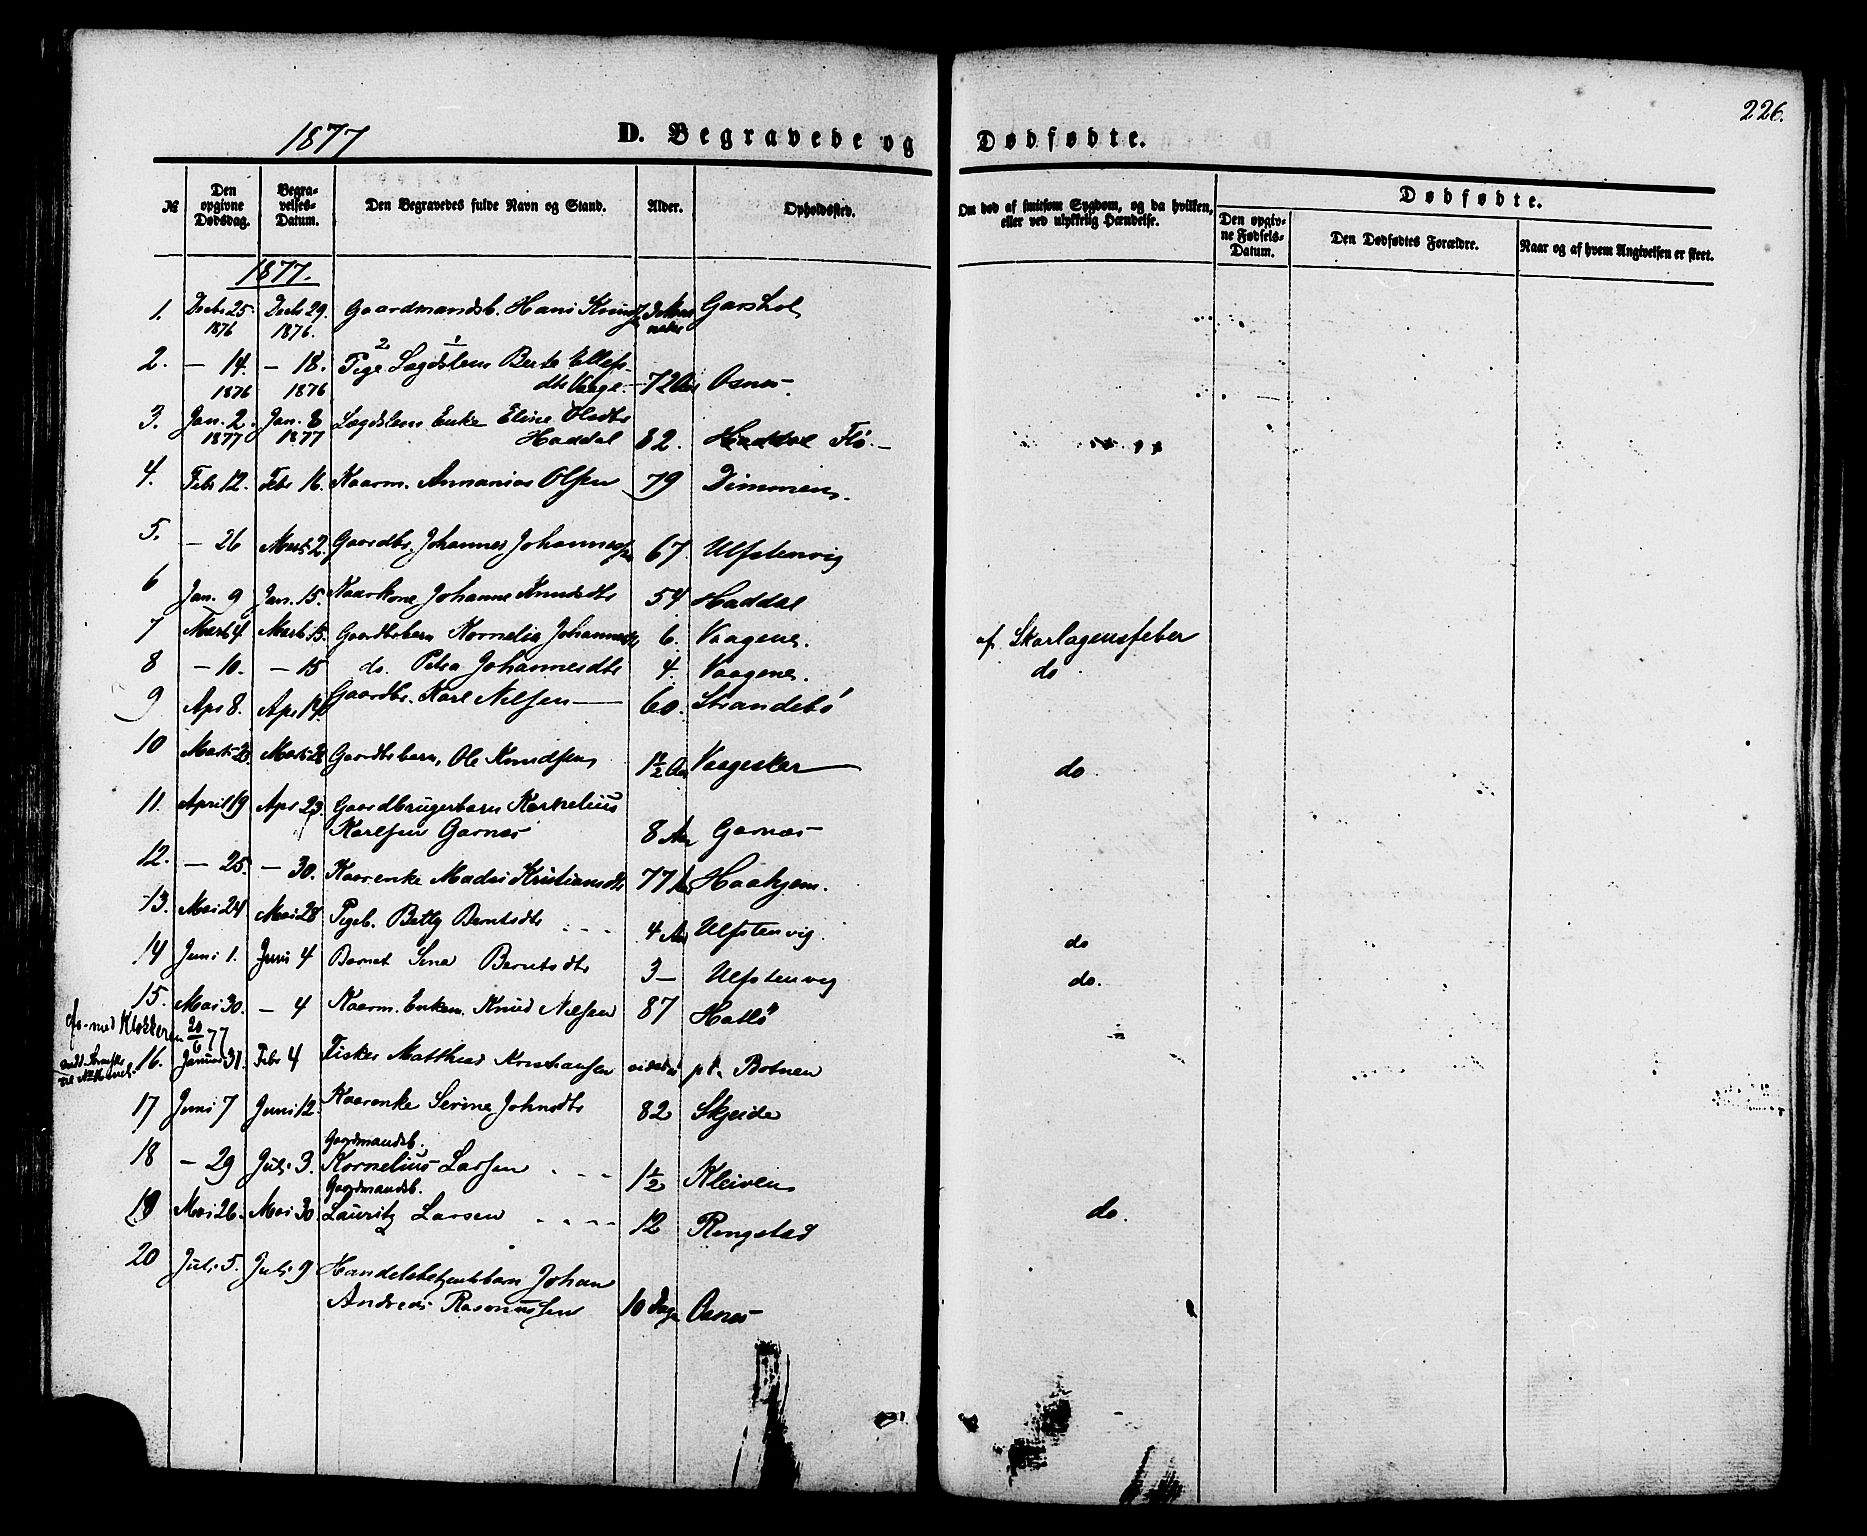 226.
1877 D. Begravede og Dødfødte.
№ Den opgivne Dødsdag. Begravelses-Datum. Den Begravedes fulde Navn og Stand. Alder. Opholdssted. Om død af smitsom Sygdom, og da hvilken, eller ved ulykkelig Hændelse. Dødfødte.
Den opgivne Fødsels-Datum. Den Dødfødtes Forældre. Naar og af hvem Angivelsen er skeet.
1877.
1. Decbr 25. 1876 Decbr 29. 1876. Gaardmandsb. Hans Garshol
2. — 14. 1876 — 18. 1876 Pige Lægdslem Berte
Vaage — 72 Aar Osnes
3. Jan. 2. 1877 Jan. 8 1877 Lægdslem Enke Eline Olsdtr
Haddal 82. Haddal Flø.
4. Febr 12. Febr 16. Kaarm. Annanias Olsen 79 Dimmen.
5. — 26 Marts 2. Gaardbr. Johannes Johannessen 67 Ulfstenvig
6 Jan. 9 Jan. 15. Kaarkone Johanne Knudsdtr 54 Haddal
7 Marts 4 Marts 15. Gaardbrbarn Kornelia Johannesdtr 6. Vaagene. af Skarlagensfeber
8 — 10. — 15 do. Petra Johannesdtr 4. Vaagene. do
9 Apr 8. Apr 14 Gaardbr. Karl Nilsen 60. Strandebø
10 Marts Marts Gaardbrbarn, Ole Knudsen 1½ Aar Vaagesker do
11. April 19 Apr 23. Gaardbrugerbarn Kornelius
Karlsen Garnæs 8 Aar Garnæs
12. — 25. — 30. Kaarenke Madsi Kristiansdtr 77 Haahjem.
13. Mai 24 Mai 28 Pigeb. Betty Berntsdtr 4 Aar Ulfstenvig. do
14 Juni 1. Juni 4 Barnet Sina Berntsdtr 3 — Ulfstenvig do.
15. Mai 30. — 4 Kaarm. Enkem. Knud Nilsen 87 Hatlø
med Klokkeren 20/6 77
16. Januar 31. Febr 4 Fisker Matthias Kristiansen p. t. Botnen
17 Juni 7 Juni 12. Kaarenke Serine Johnsdtr 82 Skjeide
18 — 29 Juli 3. Gaardmandsb.
Kornelius Larsen 1½ Kleiven
19 Mai 26. Mai 30. Gaardmandsb.
Lauritz Larsen 12 Ringstad do.
20 Juli 5. Juli 9 Handelsbetjentsbarn Johan
Andreas Rasmussen 10 Dage Osnes